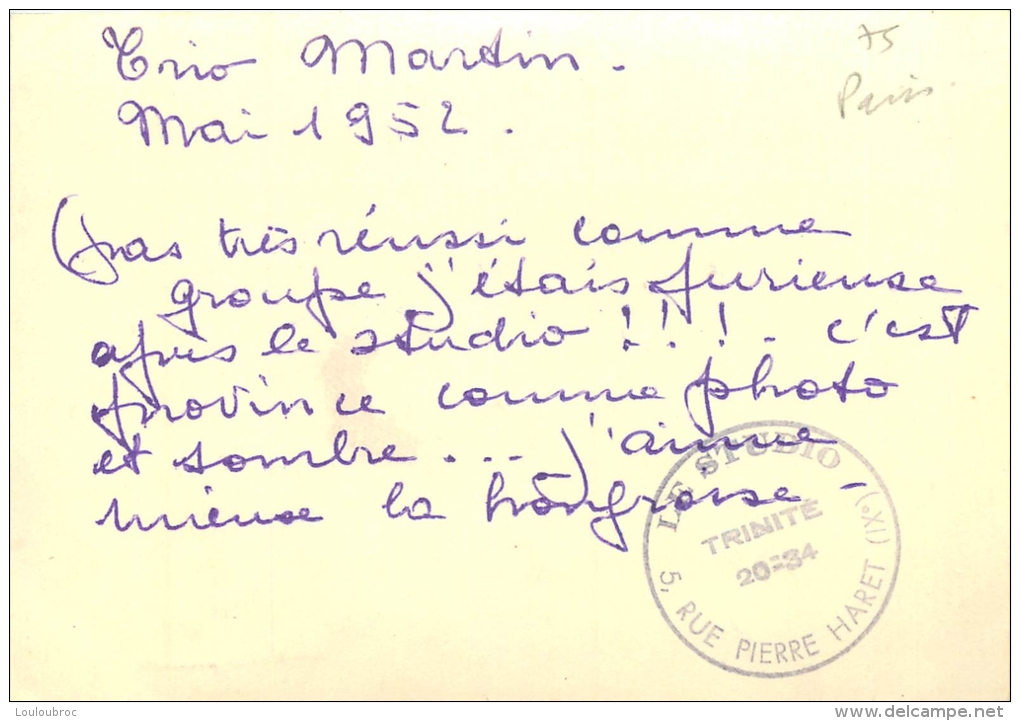 Trio Martin.
75
Paris.
Mai 1952.
(pas très réussi comme
groupe j'étais furieuse
après le studio !!!. c'est
province comme photo
et sombre ... j'aime
mieux la hongroise -
LE STUDIO
TRINITÉ
20=34
5, RUE PIERRE HARET (IXe)
Louloubroc
www.delcampe.net